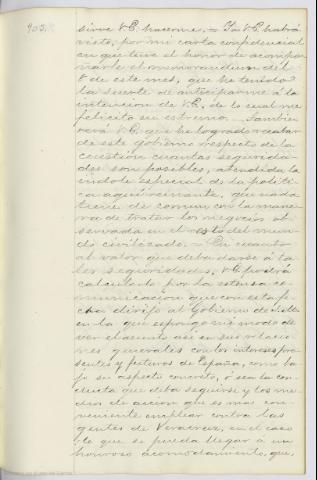 905
sirve V.E. hacerme. = Ya V.E. habrá
visto, por mi carta confidencial
en que tuve el honor de acompa-
ñarle el memorandum del
8 de este mes, que he tenido
la suerte de anticiparme á la
intencion de V.E. de lo cual me
felicito en estremo. Tambien
verá V.E. que he logrado recabar
de este gobierno respecto de la
cuestión cuantas segurida-
des son posibles, atendida la
indole especial de la políti-
ca aquí reinante, que nada
tiene de comun con la mane-
ra de tratar los negocios ob-
servada en el resto del mun-
do civilizado. = En cuanto
al valor que deba darse á ta-
les seguridades, V.E. podrá
calcularlo por la estensa co-
municacion que con esta fe-
cha dirijo al Gobierno de
en la que espongo mi modo de
ver el asunto asi en sus relacio-
nes generales con los intereses pre-
sentes y futuros de España, como ba-
jo su aspecto concreto, ó sea la con-
ducta que deba seguirse y los me-
dios de accion que es mas con-
veniente emplear contra las
gentes de Veracruz, en el caso
de que se pueda llegar á un
honroso acomodamiento, que,